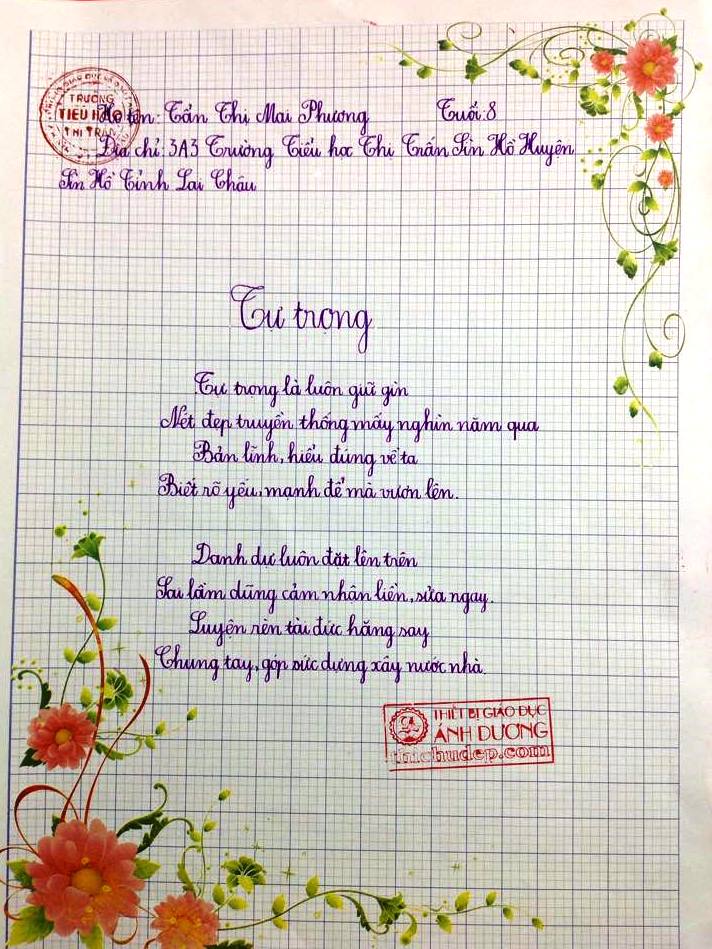 TRƯỜNG
TIỂU HỌC
THỊ TRẤN
Họ tên: Tẩn Thị Mai Phương Tuổi: 8
Địa chỉ: 3A3 Trường Tiểu học Thị Trấn Sìn Hồ Huyện
Sìn Hồ Tỉnh Lai Châu
Tự trọng
Tự trọng là luôn giữ gìn
Nét đẹp truyền thống mấy nghìn năm qua
Bản lĩnh, hiểu đúng về ta
Biết rõ yếu, mạnh để mà vươn lên.
Danh dự luôn đặt lên trên
Sai lầm dũng cảm nhận liền, sửa ngay.
Luyện rèn tài đức hăng say
Chung tay, góp sức dựng xây nước nhà.
THIẾT BỊ GIÁO DỤC
ÁNH DƯƠNG
thichudep.com